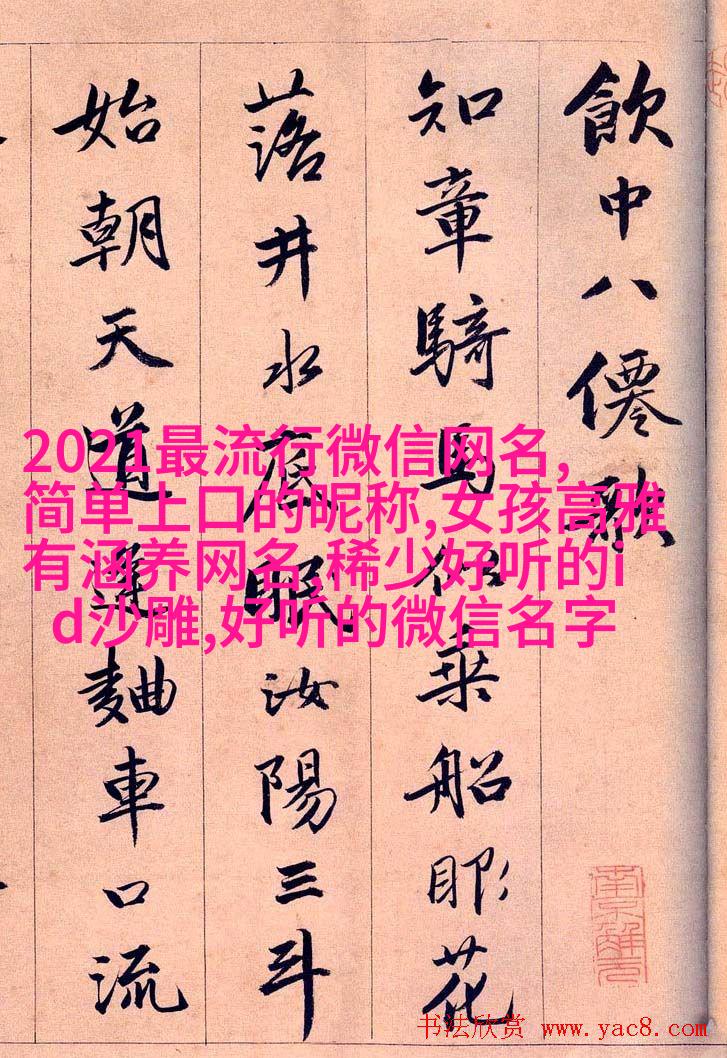 飲中八僊歌
知章騎馬似乘船眼花
落井水底眠汝陽三斗
始朝天道逢麯車口流
南京解元
2021最流行微信网名,
简单上口的昵称,女孩高雅
有涵养网名,稀少好听的i
d沙雕,好听的微信名字
书法欣赏 www.yac8.com